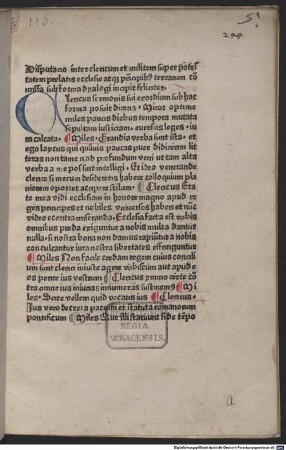 116.
5.
294.
Disputacio inter clericum et militem super põtes
tatem prelatis ecclesie atqꝫ pͥncipibꝰ terrarum cõ
missa sub forma dyalogi incipit feliciter
Clericus sermonis sui exordium sub hac
forma posuit dicens Miror optime
miles paucis diebus tempora mutata
sepultam iusticiam euersas leges iu
ra calcata Miles Grandia verba sunt ista et
ego laycus qui quãuis paucos puer didicerim lit
teras non tame n ad profundum veni vt tam alta
verba a me possint intelligi Et ideo venerande
clerice si mecum desideretis habere colloquium pla
niorem oportet accipere stilum Clericus Eta
te mea vidi ecclesiam in honore magno apud re
ges principes et nobiles vniuersos haberi et nũc
video e contra miseranda Ecclesia facta est vobis
omnibus preda exiguntur a nobis multa dantur
nulla si nostra bona non damus rapiũtur a nobis
conculcantur iura nostra libertates effringuntur
Miles Non facile credam regem cuius consili
um sunt clerici iniuste agere vobiscum aut apud e
os perire ius vestrum Clericus Immo certe cõ
tra omne ius iniurias innumeras sustinemꝰ Mi
les Scire vellem quid vocatis ius Clericus
Jus voco decreta patrum et statuta romanorum
pontificum Miles Que illi statuunt si de tẽpo
BIBLIOTHECA
REGIA
MONACENSIS.
a